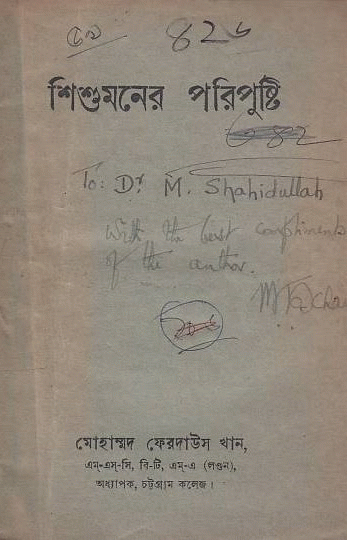 ৫৯ 426
শিশুমনের পরিপুষ্টি
To: Dr M. Shahidullah
With the best compliments
of the author.
মোহাম্মদ ফেরদাউস খান,
এম-এস-সি, বি-টি, এম-এ (লণ্ডন),
অধ্যাপক, চট্টগ্রাম কলেজ।